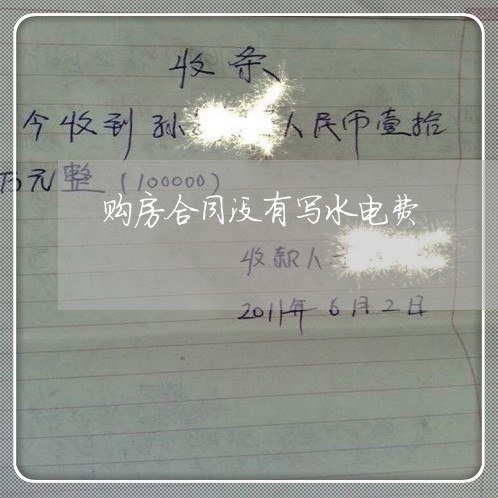 收条
今收到孙 人民币壹拾
万元整(100000)
购房合同没有写水电费
收款人
2011年6月2日